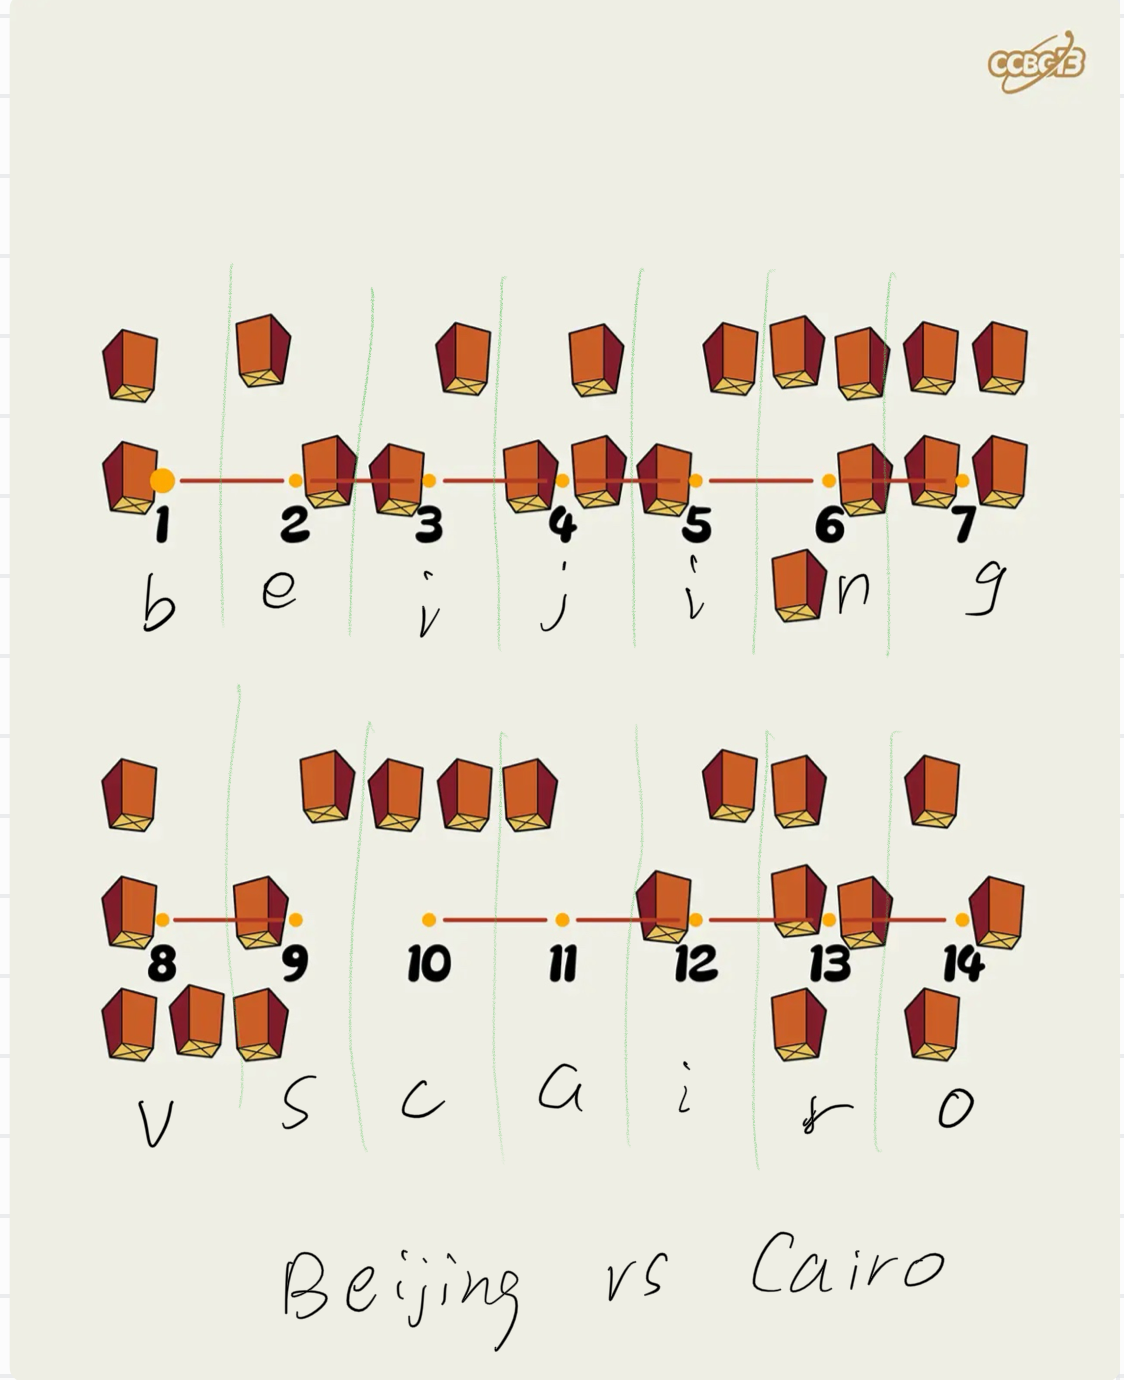 CCBC13
1 2 3 4 5 6 7
b e i j i n g
8 9 10 11 12 13 14
v s c a i r o
Beijing vs Cairo